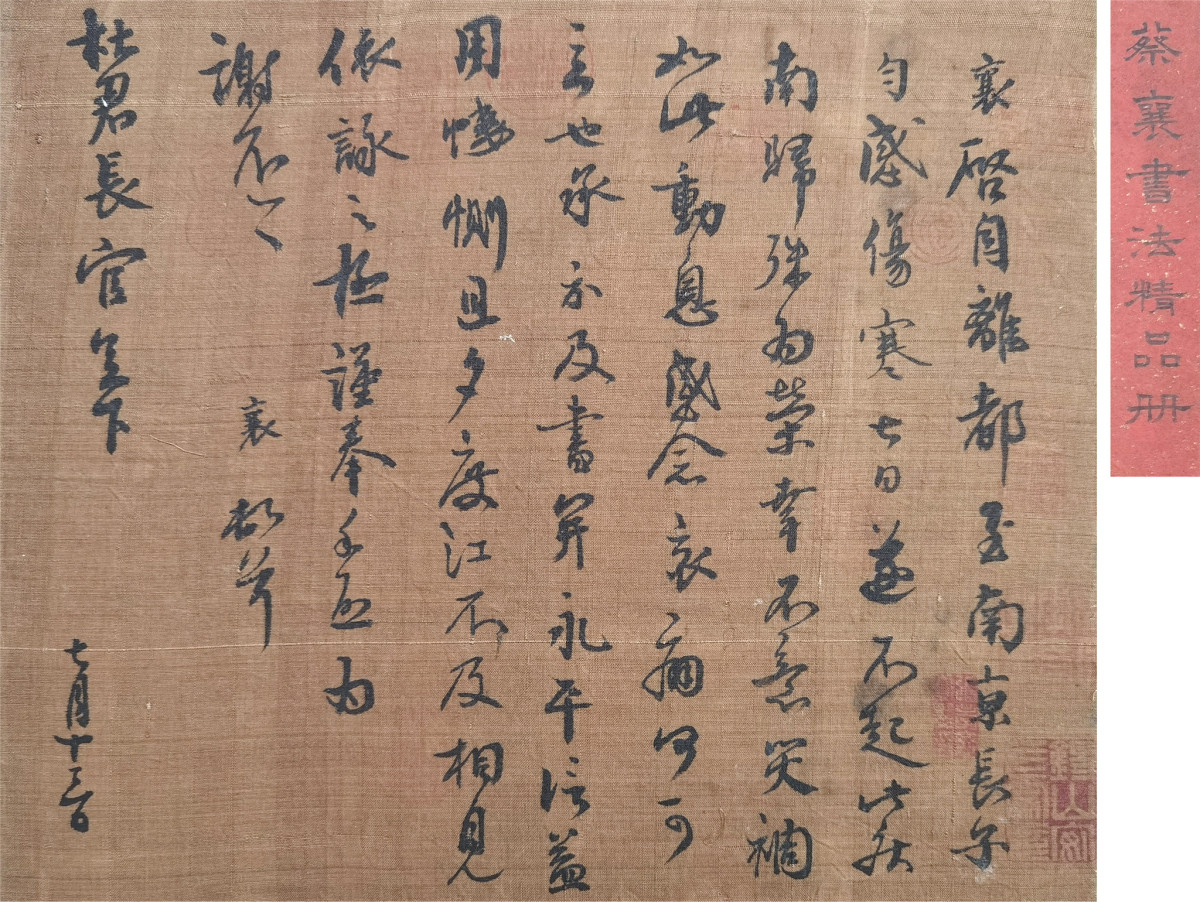 蔡襄書法精品册
襄啓自離都至南京長子
勻感傷寒七日遂不起此疾
南歸殊為榮幸不意災禍
如此動息感念哀痛何可
言也承示及書并永平信益
用悽惻旦夕度江不及相見
依詠之極謹奉手啓為
謝不一一
襄頓首
杜君長官足下
七月十三日